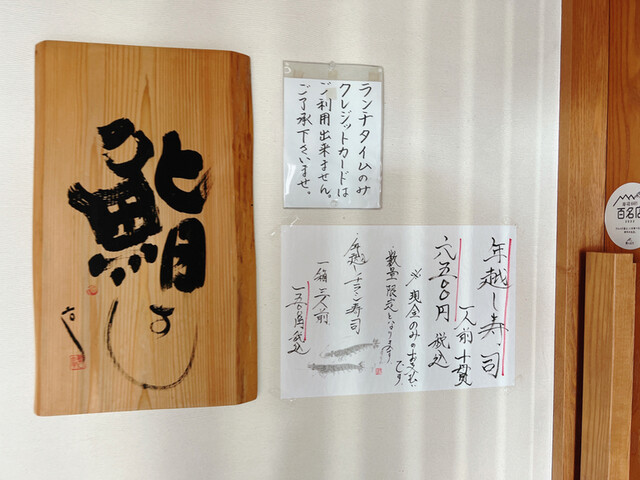 鮨
ランチタイムのみ
クレジットカードは
ご利用出来ません。
ご了承下さいませ。
年越し寿司
一人前十貫
六五〇〇円 税込
※現金のみのお支払
です
数量限定となります
年越しチラシ寿司
税込
百名店